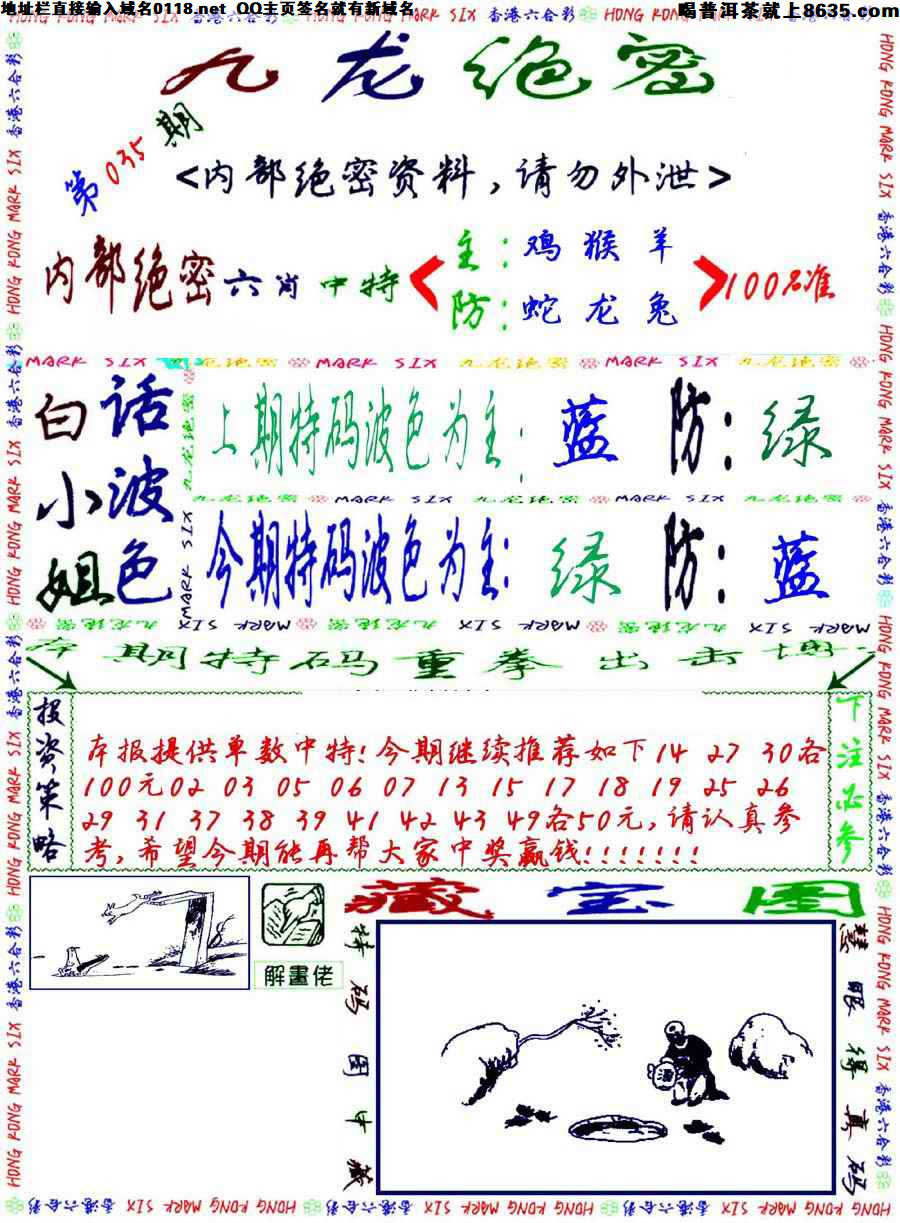 地址栏直接输入域名0118.net QQ主页签名就有新域名
喝普洱茶就上8635.com
香港六合彩 HONG KONG MARK SIX
九龙绝密
第035期
<内部绝密资料,请勿外泄>
内部绝密六肖中特
主:鸡猴羊
防:蛇龙兔
100%准
MARK SIX 九龙绝密 MARK SIX 九龙绝密 MARK SIX 九龙绝密
白小姐
话波色
上期特码波色为主:蓝 防:绿
九龙绝密 MARK SIX 九龙绝密 MARK SIX 九龙绝密
今期特码波色为主:绿 防:蓝
九龙绝密 MARK SIX 九龙绝密 MARK SIX 九龙绝密 MARK SIX
本期特码重拳出击
投资策略
本报提供单数中特!今期继续推荐如下14 27 30各
100元02 03 05 06 07 13 15 17 18 19 25 26
29 31 37 38 39 41 42 43 49各50元,请认真参
考,希望今期能再帮大家中奖赢钱!!!!!!!
下注必参
藏宝图
解畫佬
特码图中藏
慧眼得真码
酒
香港六合彩 HONG KONG MARK SIX